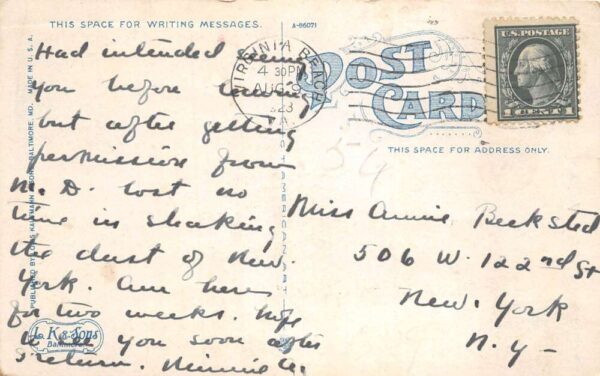 THIS SPACE FOR WRITING MESSAGES.
A-86071
Had intended seeing
you before leaving
but after getting
permission from
M. D. lost no
time in shaking
the dust of New
York. Am here
for two weeks. Hope
to see you soon after
I return. Minnie
PUBLISHED BY LOUIS KAUFMANN & SONS, BALTIMORE, MD. MADE IN U.S.A.
L. K. & Sons
Baltimore
VIRGINIA BEACH
4 30 PM
AUG
1923
VA.
POST
CARD
THIS SPACE FOR ADDRESS ONLY.
U.S. POSTAGE
1 CENT 1
Miss Annie Becksted
506 W. 122nd St
New York
N. Y.